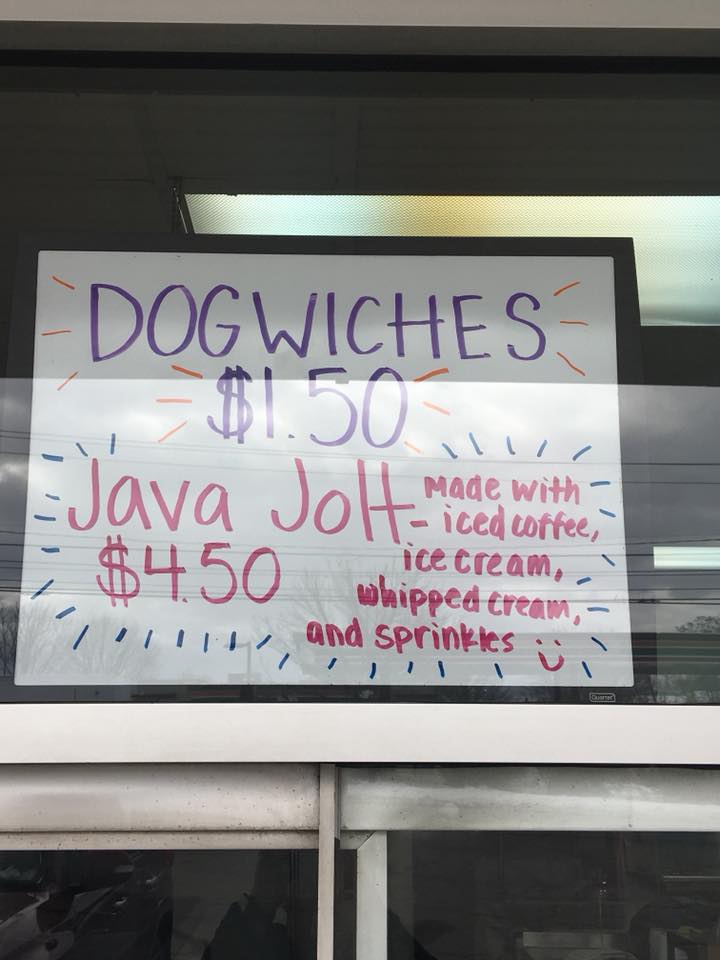 DOGWICHES
$1.50
Java Jolt-
$4.50
Made with
iced coffee,
ice cream,
whipped cream,
and sprinkles
Quartet